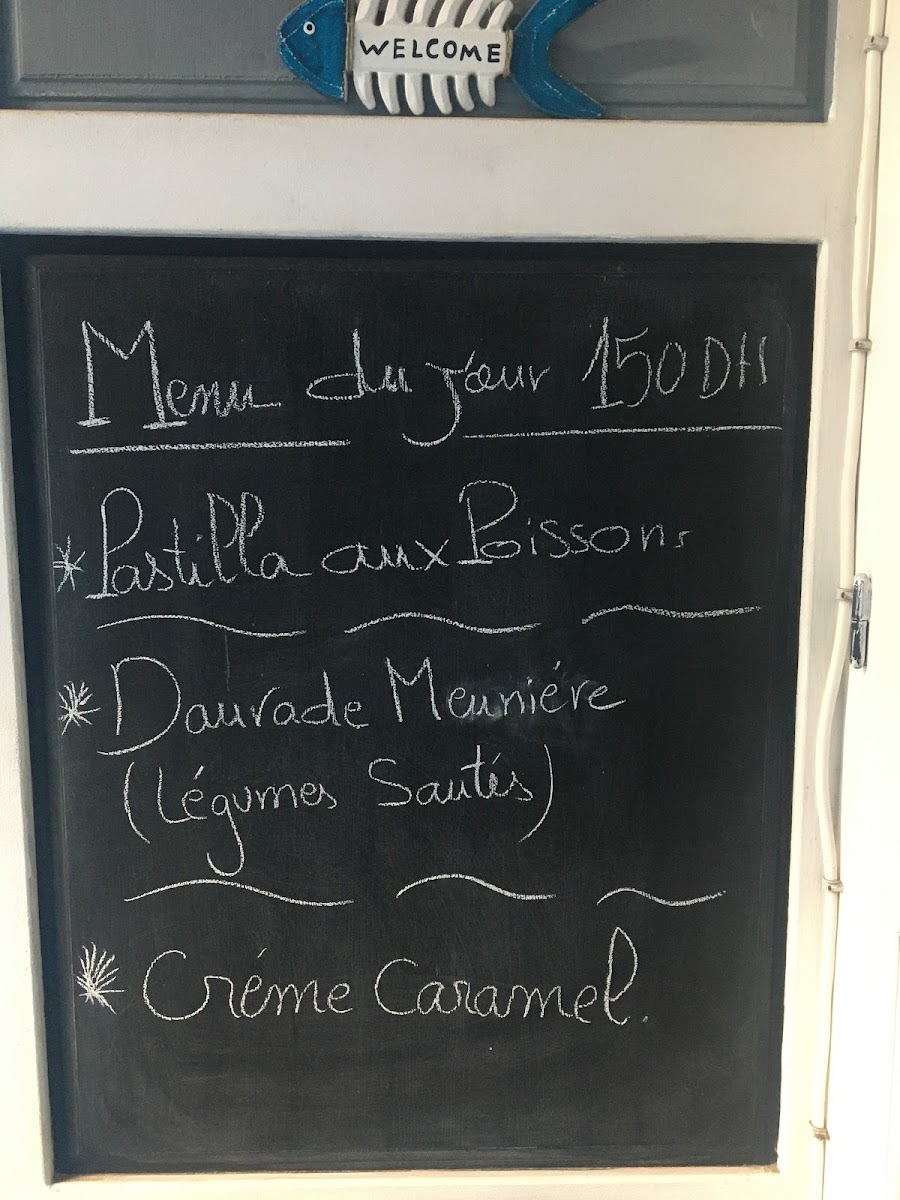 WELCOME
Menu du jour 150 DH
* Pastilla aux Poissons
* Daurade Meuniére
(Légumes Sautés)
* Créme Caramel.